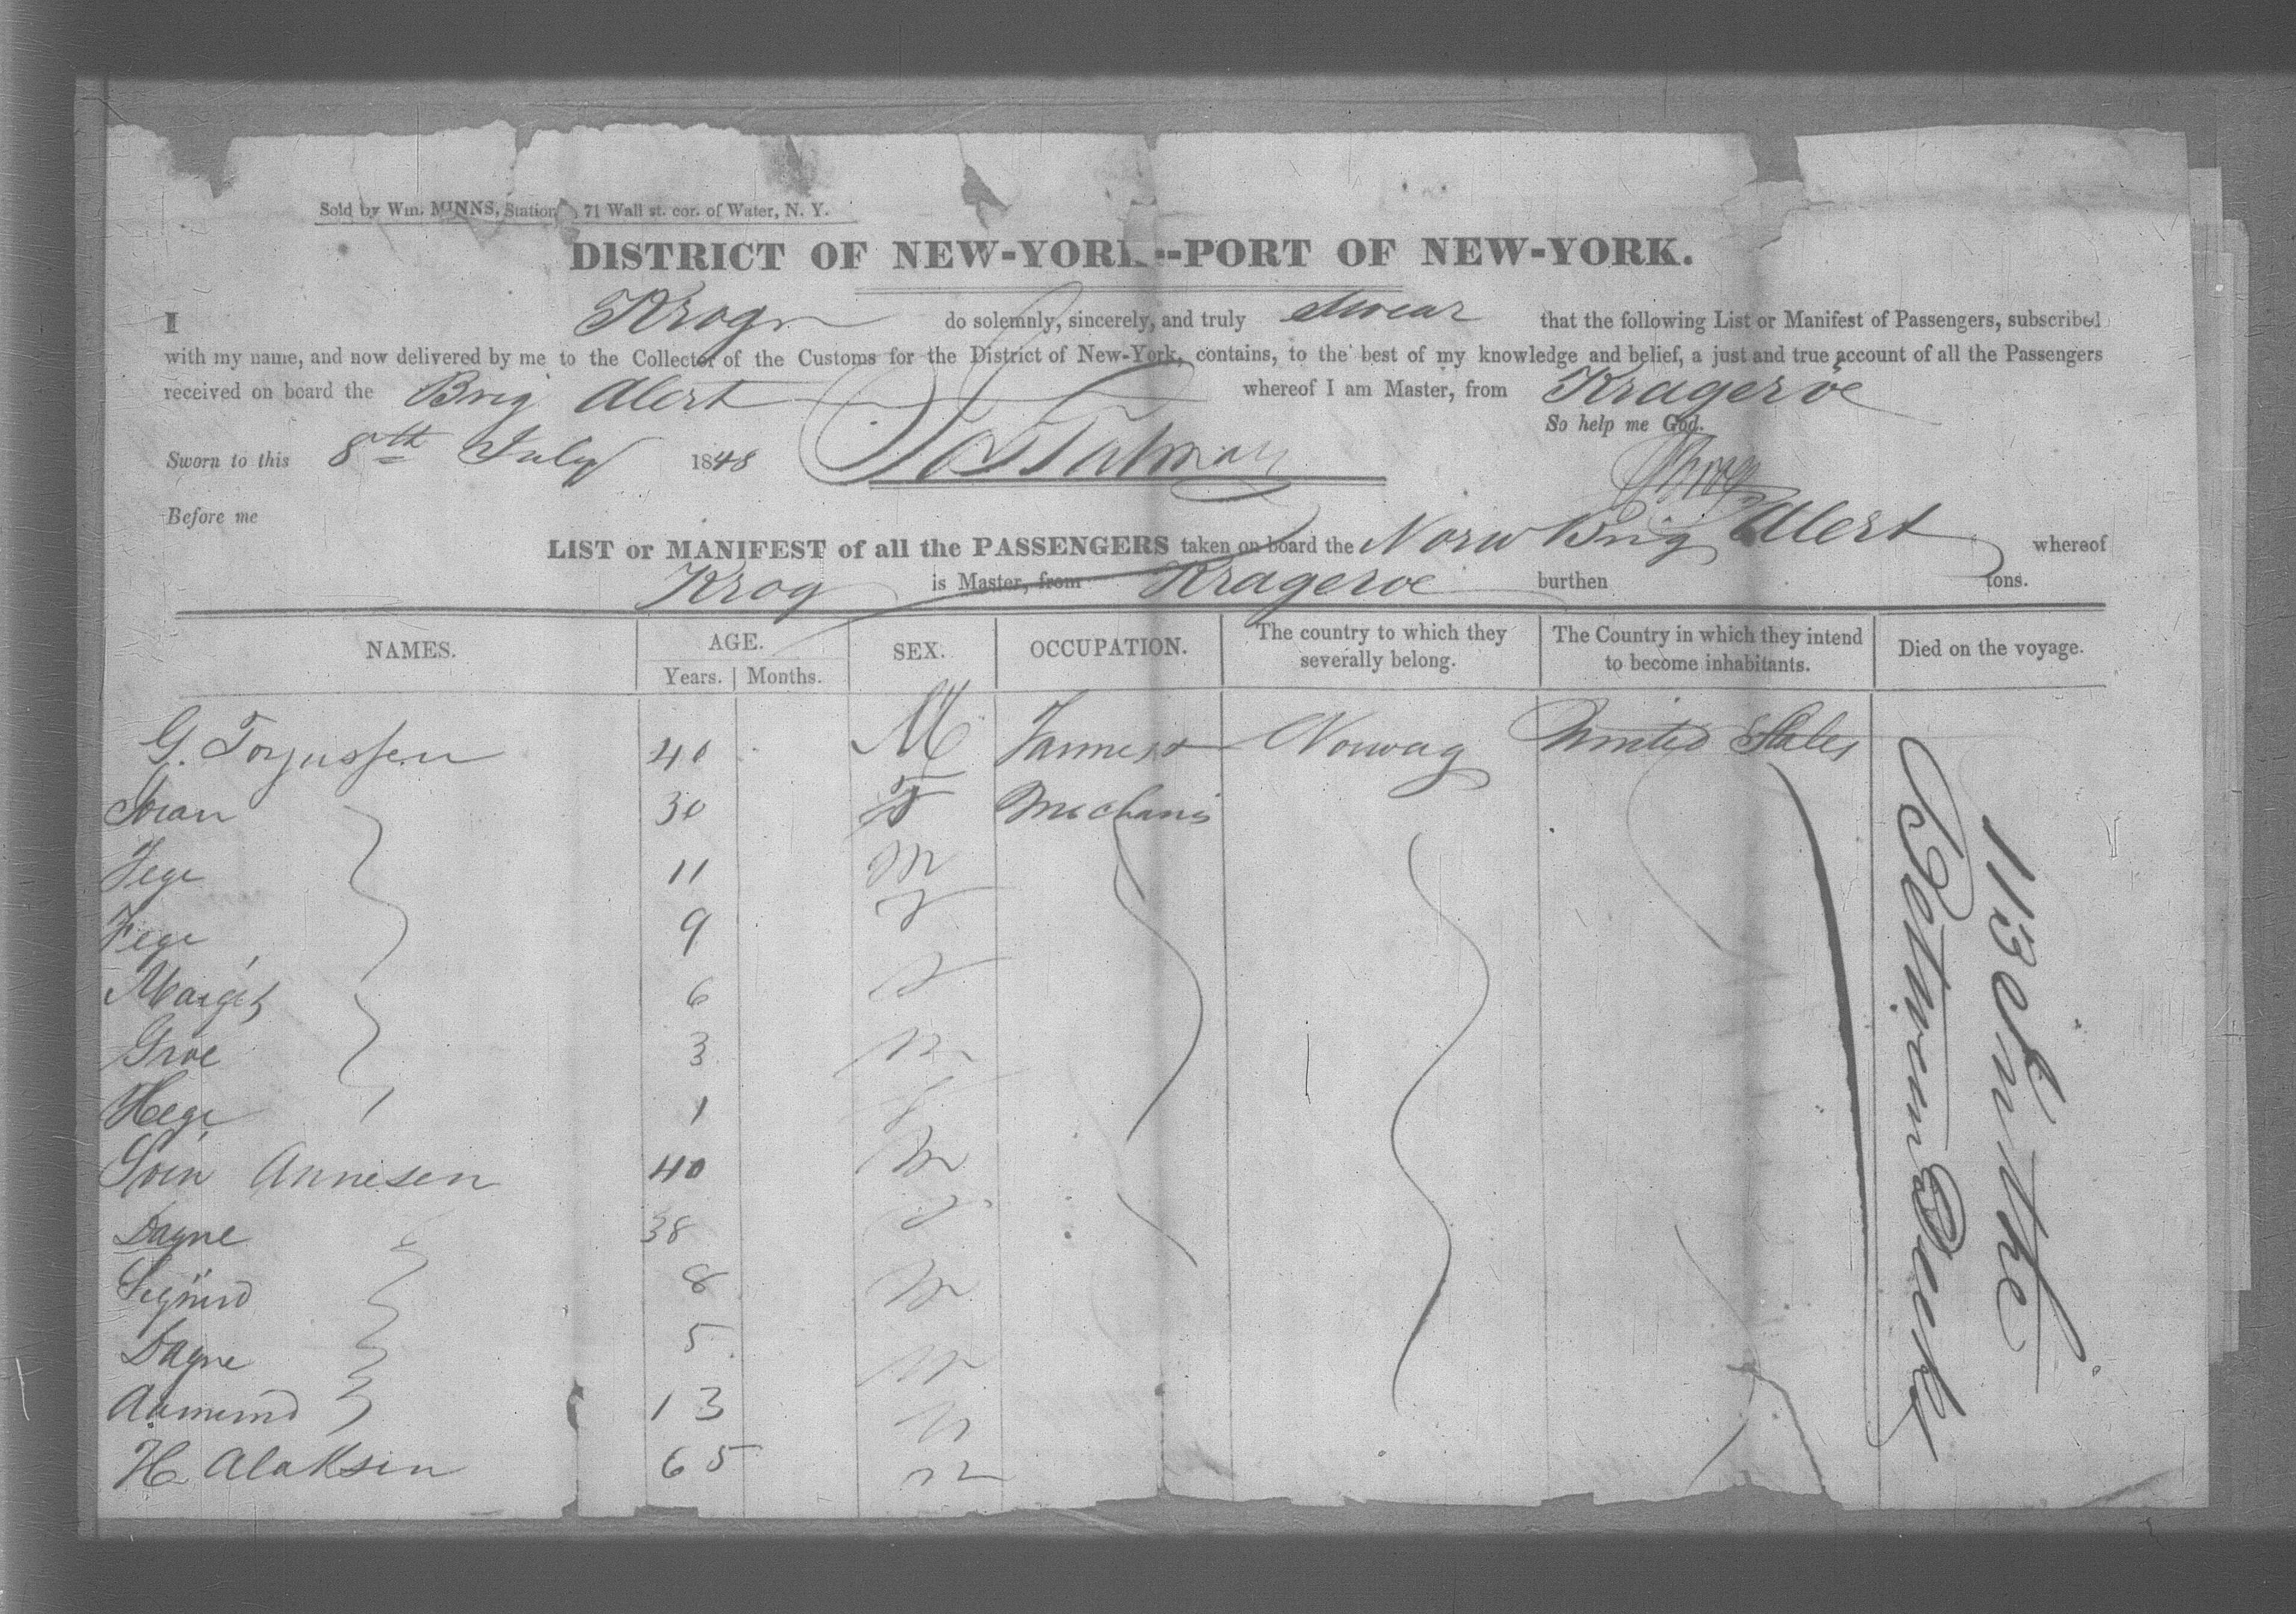 Sold by Wm. MINNS, Station 71 Wall st. cor. of Water, N. Y.
DISTRICT OF NEW-YORK--PORT OF NEW-YORK.
I Krog do solemnly, sincerely, and truly swear that the following List or Manifest of Passengers, subscribed
with my name, and now delivered by me to the Collector of the Customs for the District of New-York, contains, to the best of my knowledge and belief, a just and true account of all the Passengers
received on board the Brig Alert whereof I am Master, from Krageröe
So help me God.
Sworn to this 8th July 1848
Krog
Before me
LIST or MANIFEST of all the PASSENGERS taken on board the Norw Brig Alert whereof
Krog is Master, from Krageroe burthen tons.
NAMES. AGE. SEX. OCCUPATION. The country to which they severally belong. The Country in which they intend to become inhabitants. Died on the voyage.
Years. Months.
G. Torjussen 40 M Farmer Norway United States
30 F Mechanis
11 M
Fege 9 F
Margit 6 F
Groe 3 M
Hege 1 F
Svin Annesen 40 M
Dagne 38 F
8 M
Dagne 5 M
Aamund 13 M
H Alaksen 65 M
113 in the
Between Deck